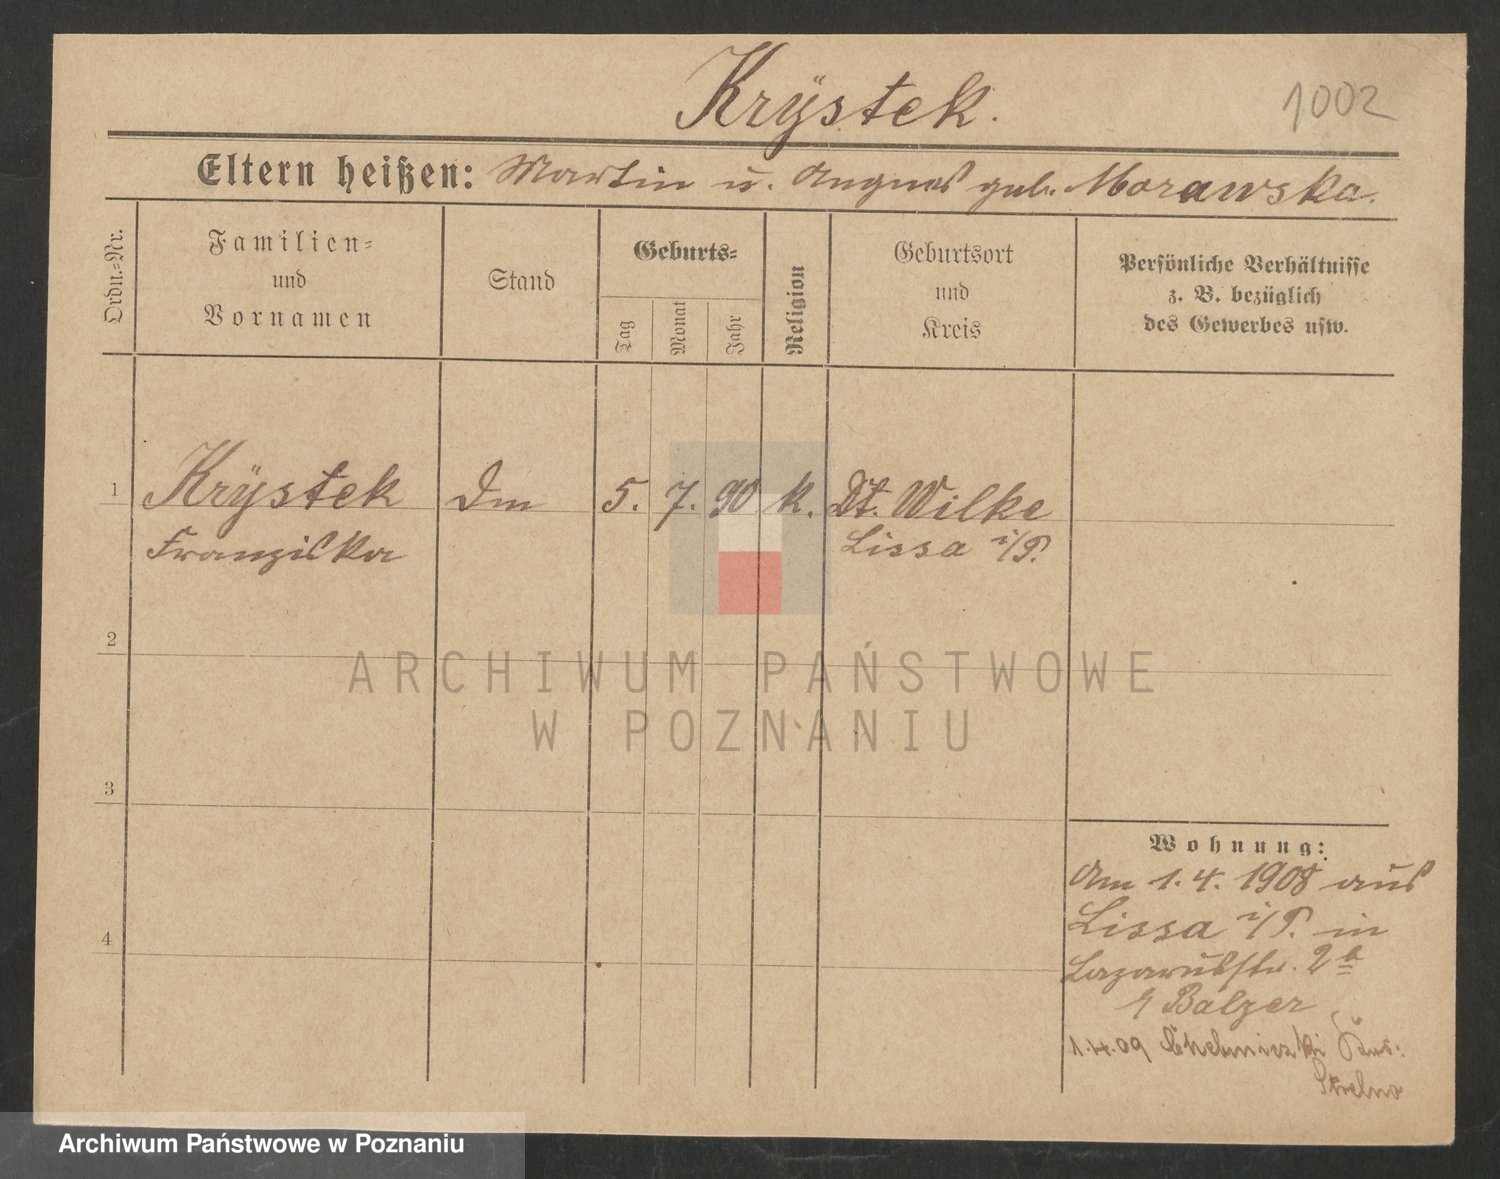 Krÿstek.
1002
Eltern heißen: Martin u. Angnes geb. Morawska.
Ordn.-Nr.
Familien-
und
Vornamen
Stand
Geburts-
Tag
Monat
Jahr
Religion
Geburtsort
und
Kreis
Persönliche Verhältnisse
z. B. bezüglich
des Gewerbes usw.
1 Krÿstek 5. 7. 90 k. Dt. Wilke
Franziska Lissa i/P.
2
ARCHIWUM PAŃSTWOWE
W POZNANIU
3
Wohnung:
Am 1. 4. 1908 aus
Lissa i/P. in
4
Lazarusstr. 2b
Balzer
1.4.09
Strelno
Archiwum Państwowe w Poznaniu